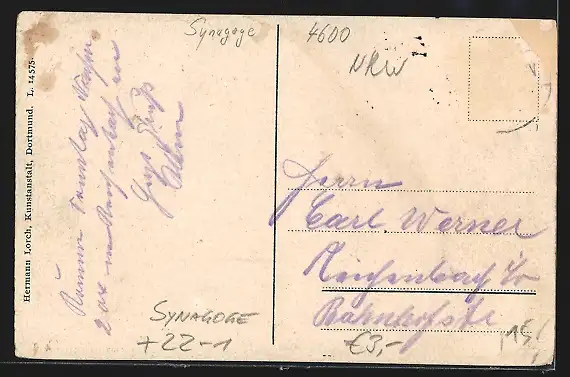 Synagoge
4600
NRW
Hermann Lorch, Kunstanstalt, Dortmund. L. 14575.
Komme Sonntag
2 Uhr in Reichenbach an
Gruß
Herrn
Carl Werner
Reichenbach
Bahnhofstr
SYNAGOGE
+22-1
€3,-